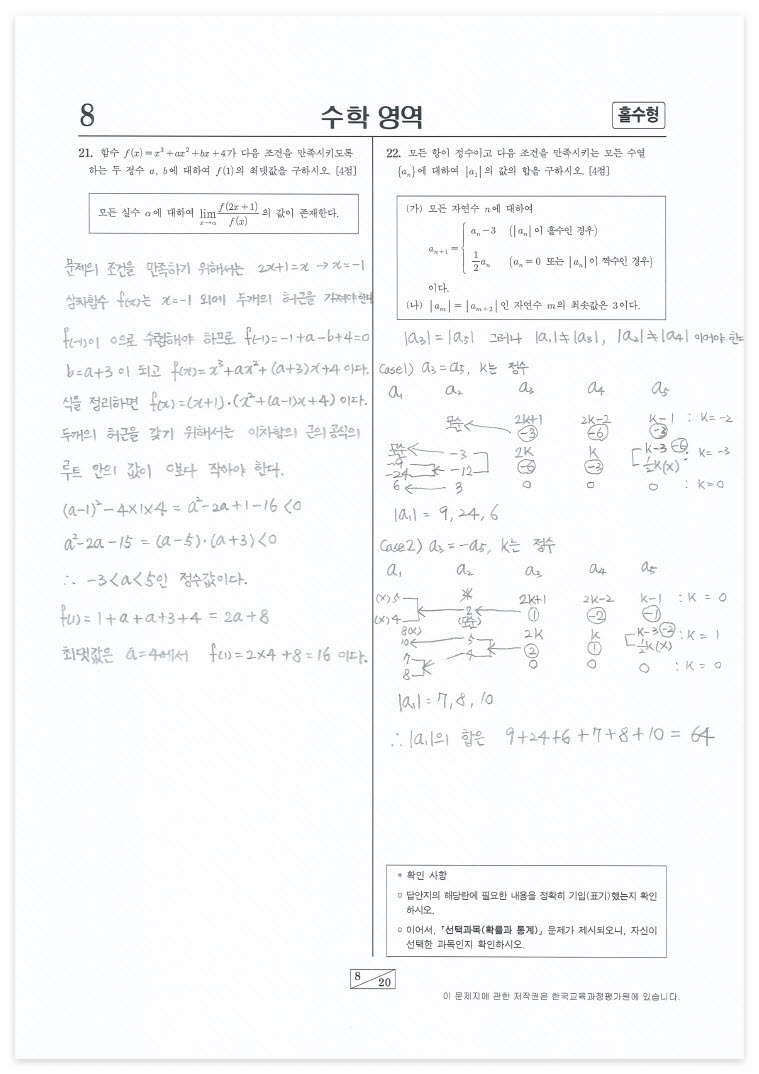 8
수학 영역
홀수형
21. 함수 f(x)=x³+ax²+bx+4가 다음 조건을 만족시키도록
하는 두 정수 a, b에 대하여 f(1)의 최댓값을 구하시오. [4점]
모든 실수 α에 대하여 lim x→α f(2x+1)/f(x) 의 값이 존재한다.
문제의 조건을 만족하기 위해서는 2x+1=x → x=-1
삼차함수 f(x)는 x=-1 외에 두개의 허근을 가져야 한다
f(-1)이 0으로 수렴해야 하므로 f(-1)=-1+a-b+4=0
b=a+3 이 되고 f(x)=x³+ax²+(a+3)x+4 이다.
식을 정리하면 f(x)=(x+1)·(x²+(a-1)x+4) 이다.
두개의 허근을 갖기 위해서는 이차항의 근의 공식의
루트 안의 값이 0보다 작아야 한다.
(a-1)²-4×1×4 = a²-2a+1-16 <0
a²-2a-15 = (a-5)·(a+3)<0
∴ -3<a<5인 정수값이다.
f(1)=1+a+a+3+4 = 2a+8
최댓값은 a=4에서 f(1)=2×4+8=16 이다.
22. 모든 항이 정수이고 다음 조건을 만족시키는 모든 수열
{aₙ}에 대하여 |a₁|의 값의 합을 구하시오. [4점]
(가) 모든 자연수 n에 대하여
aₙ₊₁ = { aₙ-3 (|aₙ|이 홀수인 경우)
½aₙ (aₙ=0 또는 |aₙ|이 짝수인 경우)
이다.
(나) |aₘ|=|aₘ₊₂|인 자연수 m의 최솟값은 3이다.
|a₃|=|a₅| 그러나 |a₁|≠|a₃|, |a₂|≠|a₄| 이어야 한다
Case1) a₃=a₅, k는 정수
a₁ a₂ a₃ a₄ a₅
모순 ← 2k+1 2k-2 k-1 : k=-2
-3 -6 -3
모순 ← -3 2k k k-3 -6 : k=-3
-9
-24 ← -12 -6 -3 ½k(x)
6 ← 3 0 0 0 : k=0
|a₁| = 9, 24, 6
Case2) a₃=-a₅, k는 정수
a₁ a₂ a₃ a₄ a₅
(x) 5 2k+1 2k-2 k-1 : k=0
(x) 4 ← 2 ← 1 -2 -1
(모순)
8(x)
10 ← 5 2k k k-3 -2 : k=1
7 4 ← 2 1 ½k(x)
8 ← 0 0 0 : k=0
|a₁|=7, 8, 10
∴ |a₁|의 합은 9+24+6+7+8+10 = 64
* 확인 사항
○ 답안지의 해당란에 필요한 내용을 정확히 기입(표기)했는지 확인
하시오.
○ 이어서, 「선택과목(확률과 통계)」 문제가 제시되오니, 자신이
선택한 과목인지 확인하시오.
8
20
이 문제지에 관한 저작권은 한국교육과정평가원에 있습니다.